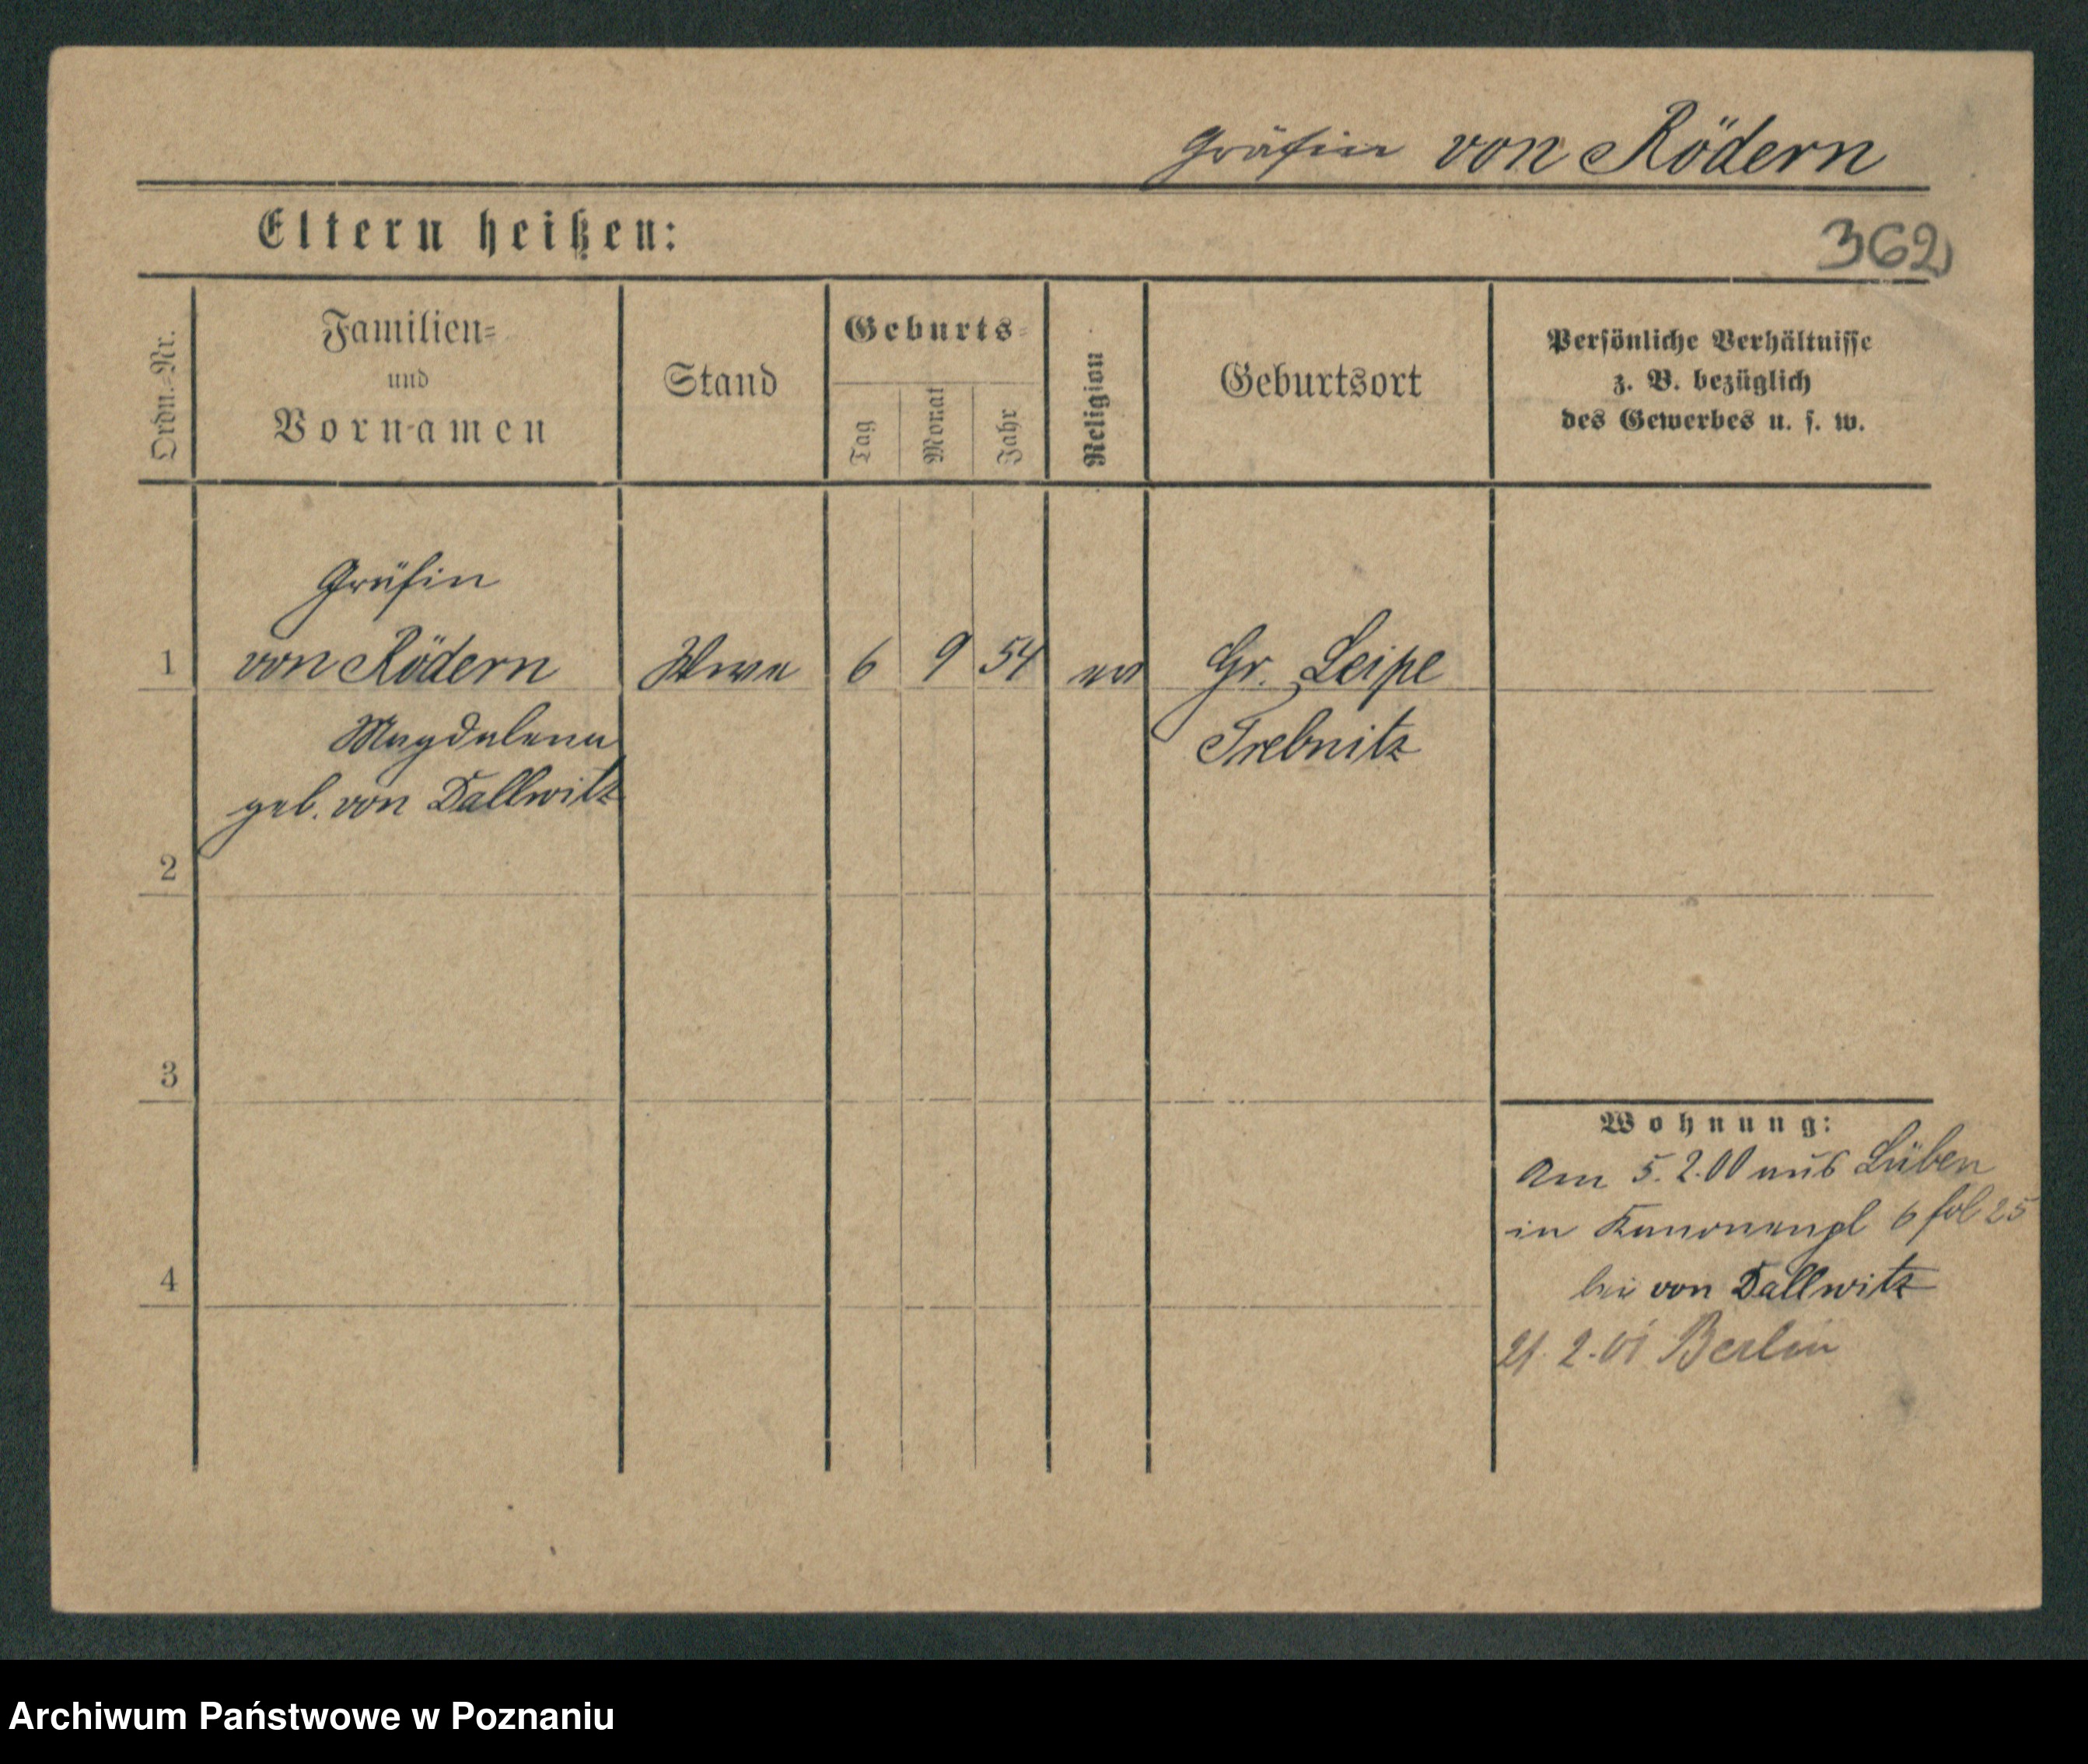 Gräfin von Rödern
Eltern heißen:
362
Ordn.=Nr.
Familien=
und
Vornamen
Stand
Geburts=
Tag
Monat
Jahr
Religion
Geburtsort
Persönliche Verhältnisse
z. B. bezüglich
des Gewerbes u. s. w.
Gräfin
1 von Rödern Wwe 6 9 54 ev Gr. Leipe
Magdalena Trebnitz
geb. von Dallwitz
2
3
Wohnung:
Am 5.2.00 aus Lüben
in Kanonenpl 6 fol 25
4
bei von Dallwitz
21.2.01 Berlin
Archiwum Państwowe w Poznaniu